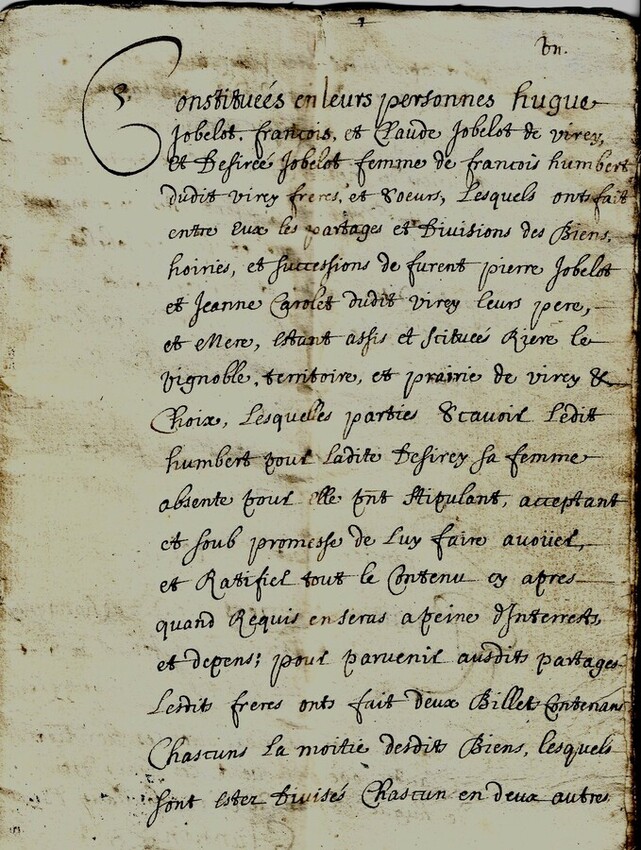 bn.
Constitueés en leurs personnes hugue
Jobelot, françois, et Claude Jobelot de virey,
et Desireé Jobelot femme de françois humbert
dudit virey freres, et soeurs, Lesquels ont fait
entre eux les partages et Divisions des Biens,
hoiries, et successions de furent pierre Jobelot
et Jeanne Carolet dudit virey leurs pere,
et Mere, estant assis et scitueés Riere le
vignoble, territoire, et prairie de virey &
Choix, Lesquelles parties Scavoir Ledit
humbert pour Ladite Desirey sa femme
absente pour elle pnt stipulant, acceptant
et soub promesse de Luy faire avoüer,
et Ratifier tout le Contenu cy apres
quand Requis en seras a peine d'Interrests
et depens; pour parvenir ausdits partages
Lesdits freres onts fait deux Billets Contenans
Chascuns La moitié desdits Biens, lesquels
sont estez Divisés Chascun en deux autres